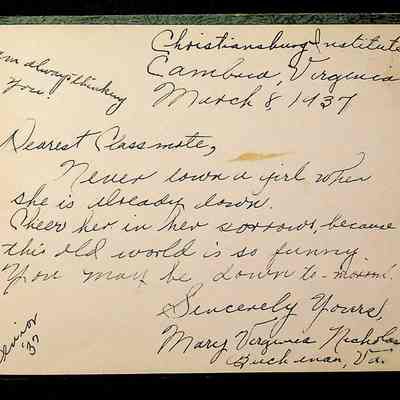 Christiansburg Institute
Cambria, Virginia
March 8, 1937
I am always thinking
You!
Dearest Classmate,
Never down a girl when
she is already down.
Cheer her in her sorrows, because
this old world is so funny
You may be down to-morrow.
Sincerely Yours,
Mary Virginia Nicholas
Buckinan, Va.
Senior
'37